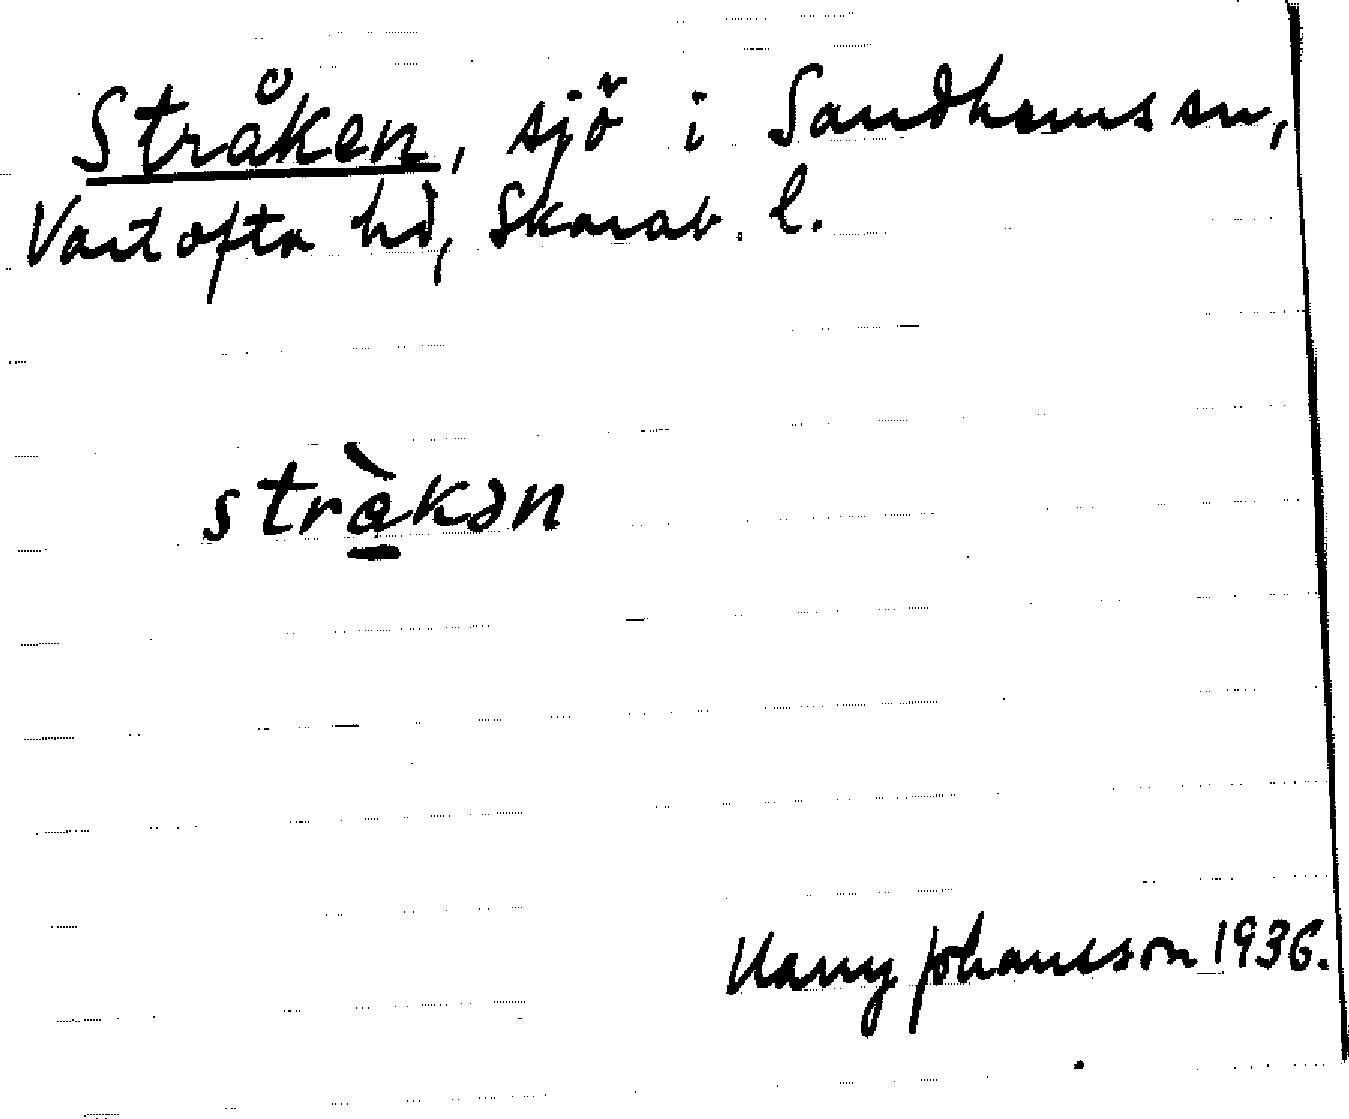 Stråken, sjö i Sandhems sn,
Vartofta hd, Skarab. l.
stràkən
Harry Johansson 1936.